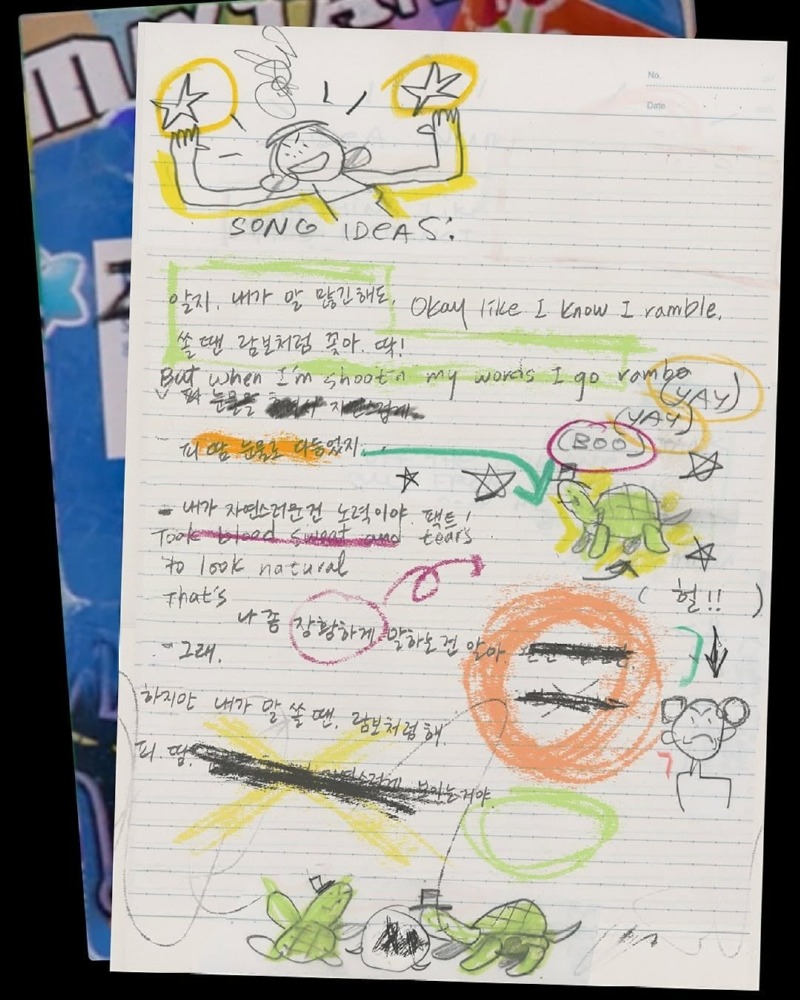 No.
Date
SONG IDEAS:
알지, 내가 말 많긴해도, Okay like I know I ramble,
쏠 땐 람보처럼 꽂아. 딱!
But when I'm shootn my words I go rambo
(YAY)
(YAY)
(BOO)
피 땀 눈물로 다듬었지
내가 자연스러운건 노력이야. 팩트!
Took blood sweat and tears
to look natural
That's
(헐!!)
나 좀 장황하게 말하는건 알아
그래.
하지만 내가 말 쏠 땐, 람보처럼 해
피 땀,
보이는거야